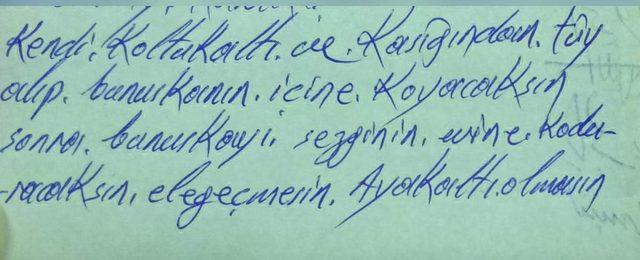 Kendi. Koltukaltı. ve. Kasığından. tüy
alıp. bunuKanın. içine. Koyacaksın
sonra. bunu sezginin. evine.
elegeçmesin. Ayakaltı.olmasın